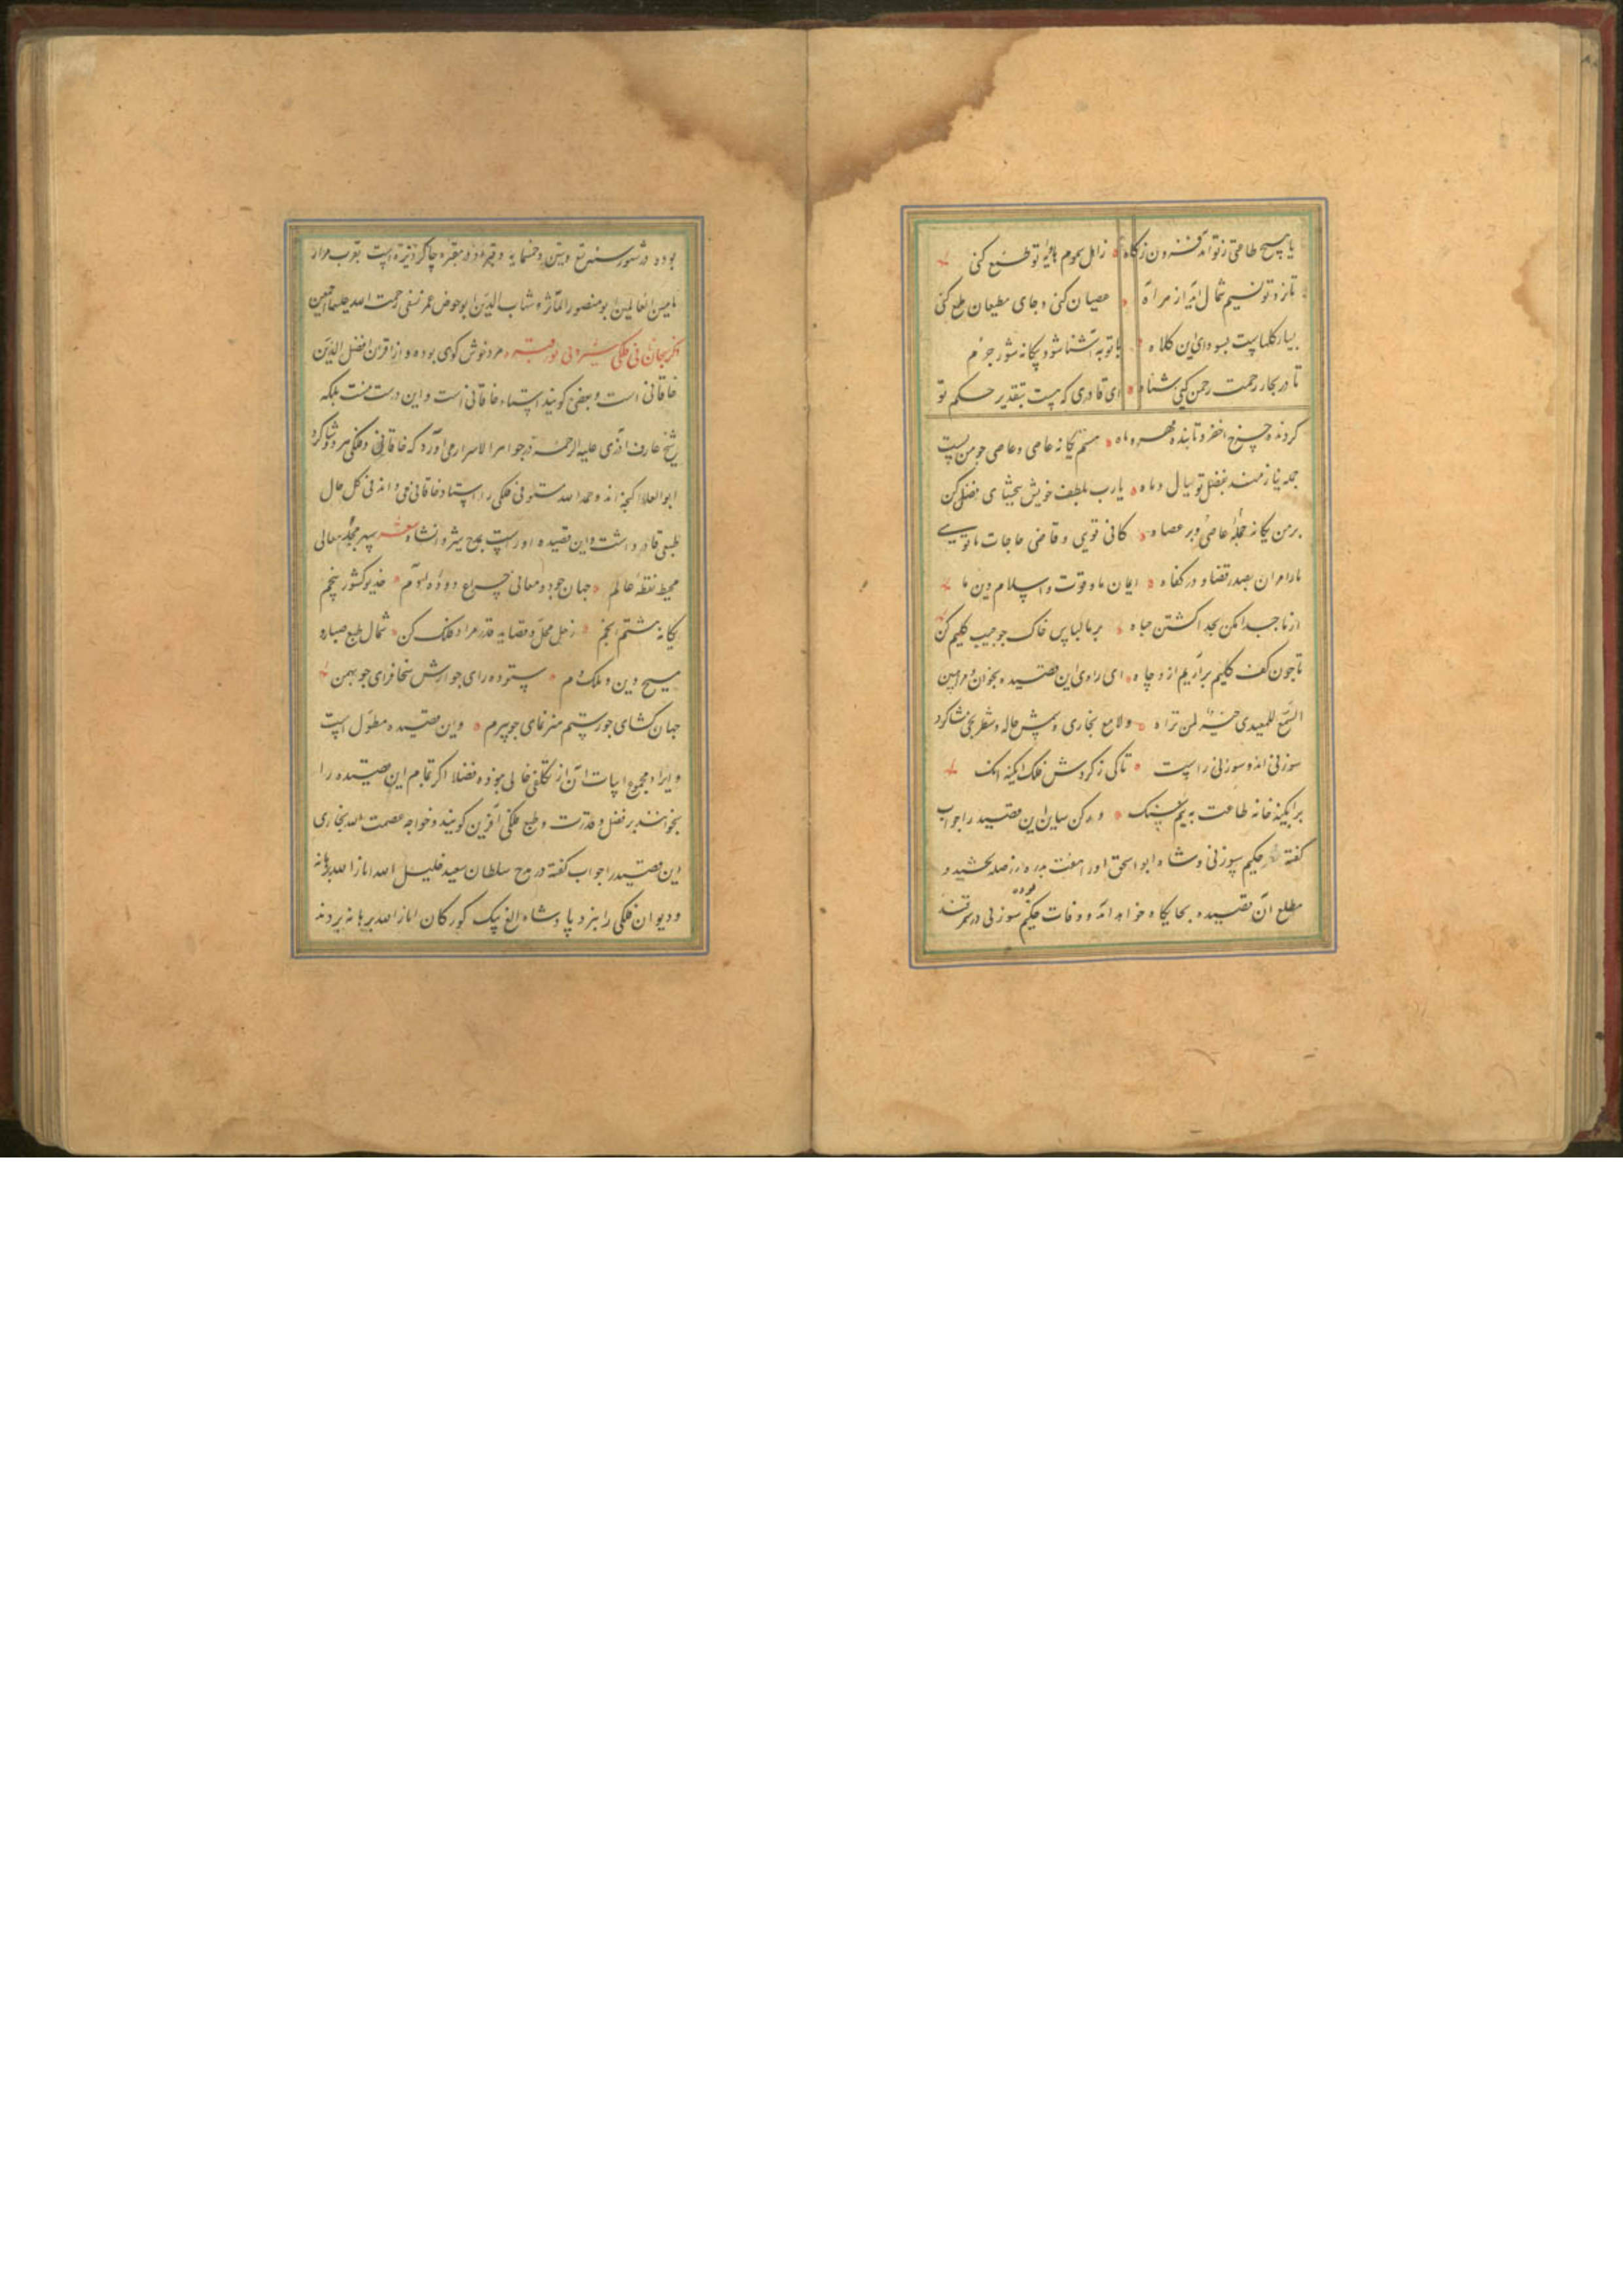 یا هیچ طاعتی ز تو آمد فزون ز کاه زاهل سموم هاویه تو طمع کنی
تا زد تو نسیم شمال آید از مراه عصیان کنی و جای مطیعان طمع کنی
بسیار کلهاست بسودای این کلاه با توبه آشنا شو و بیکانه شو ز جرم
تا در بحار رحمت رحمن کنی شناه ای قادری که هست بتقدیر حکم تو
کردنده چرخ اخضر و تابنده مهر و ماه هستم یکانه عاصی و عاصی جو من بست
جمله نیازمند بفضل تو سال و ماه یارب بلطف خویش ببخشای بفضل کن
بر من یکانه جمله عاصی و بر عصاه کافی تویی و قاضی حاجات ما تویی
ما را مران بصدر قضا و در کفاه ایمان ما و قوت و اسلام دین ما
از ما جدا مکن بجدا کشتن حیاه بر ما لباس خاک جو جیب کلیم کن
تا جون کف کلیم برآریم ازو جباه ای راوی این قصیده بخوان و مرا مبین
السمع للمعیدی خیر لمن تراه و لامع بخاری و شمس خاله و شطرنجی شاکرد
سوزنی اند و سوزنی راست تا کی ز کردش فلک آبکینه رنک
بر آبکینه خانه طاعت بریم سنک و رکن صاین این قصیده را جواب
کفته حکیم سوزنی و شاه ابو اسحق او را هفت بدره زر صله بخشید و
مطلع آن قصیده بجایکاه خواهد آمد و وفات حکیم سوزنی در سمرقند
بوده در شهور سنه تسع و ستین و خمسمایه و قبر او در مقبره چاکردیزه است بقرب مزار
امامین العالمین ابو منصور الماتریدی و شهاب الدین ابو حفص عمر نسفی رحمت الله علیهما اجمعین
ذکر سحبان ثانی فلکی شروانی نور قبره مرد خوش کوی بوده و از اقران افضل الدین
خاقانی است و بعضی کویند استاد خاقانی است و این درست نیست بلکه
شیخ عارف آذری علیه الرحمه در جواهر الاسرار می آورد که خاقانی و فلکی هر دو شاکرد
ابو العلاء کنجه اند و حمد الله مستوفی فلکی را استاد خاقانی می داند فی کل حال
طبعی قادر داشت و این قصیده او راست بمدح شروانشاه شعر سپهر مجد و معالی
محیط نقطه عالم جهان جود و معانی چراغ دوده آدم خدیو کشور پنجم
یکانه هشتم انجم زحل محل و قضا ید قدر مراد فلک کن شمال طبع صبا ره
مسیح دین و ملک دم ستوده رای جو آرش سخا فزای جو بهمن
جهان کشای جو رستم هنر نمای جو نیرم و این قصیده مطول است
و ایراد مجموع ابیات آن از تکلفی خالی نبوده فضلا اکر تمام این قصیده را
بخوانند بر فضل و قدرت و طبع فلکی آفرین کویند و خواجه عصمت الله بخاری
این قصیده را جواب کفته در مدح سلطان سعید خلیل الله انار الله برهانه
و دیوان فلکی را بنزد پادشاه الغ بیک کورکان انار الله برهانه بردند